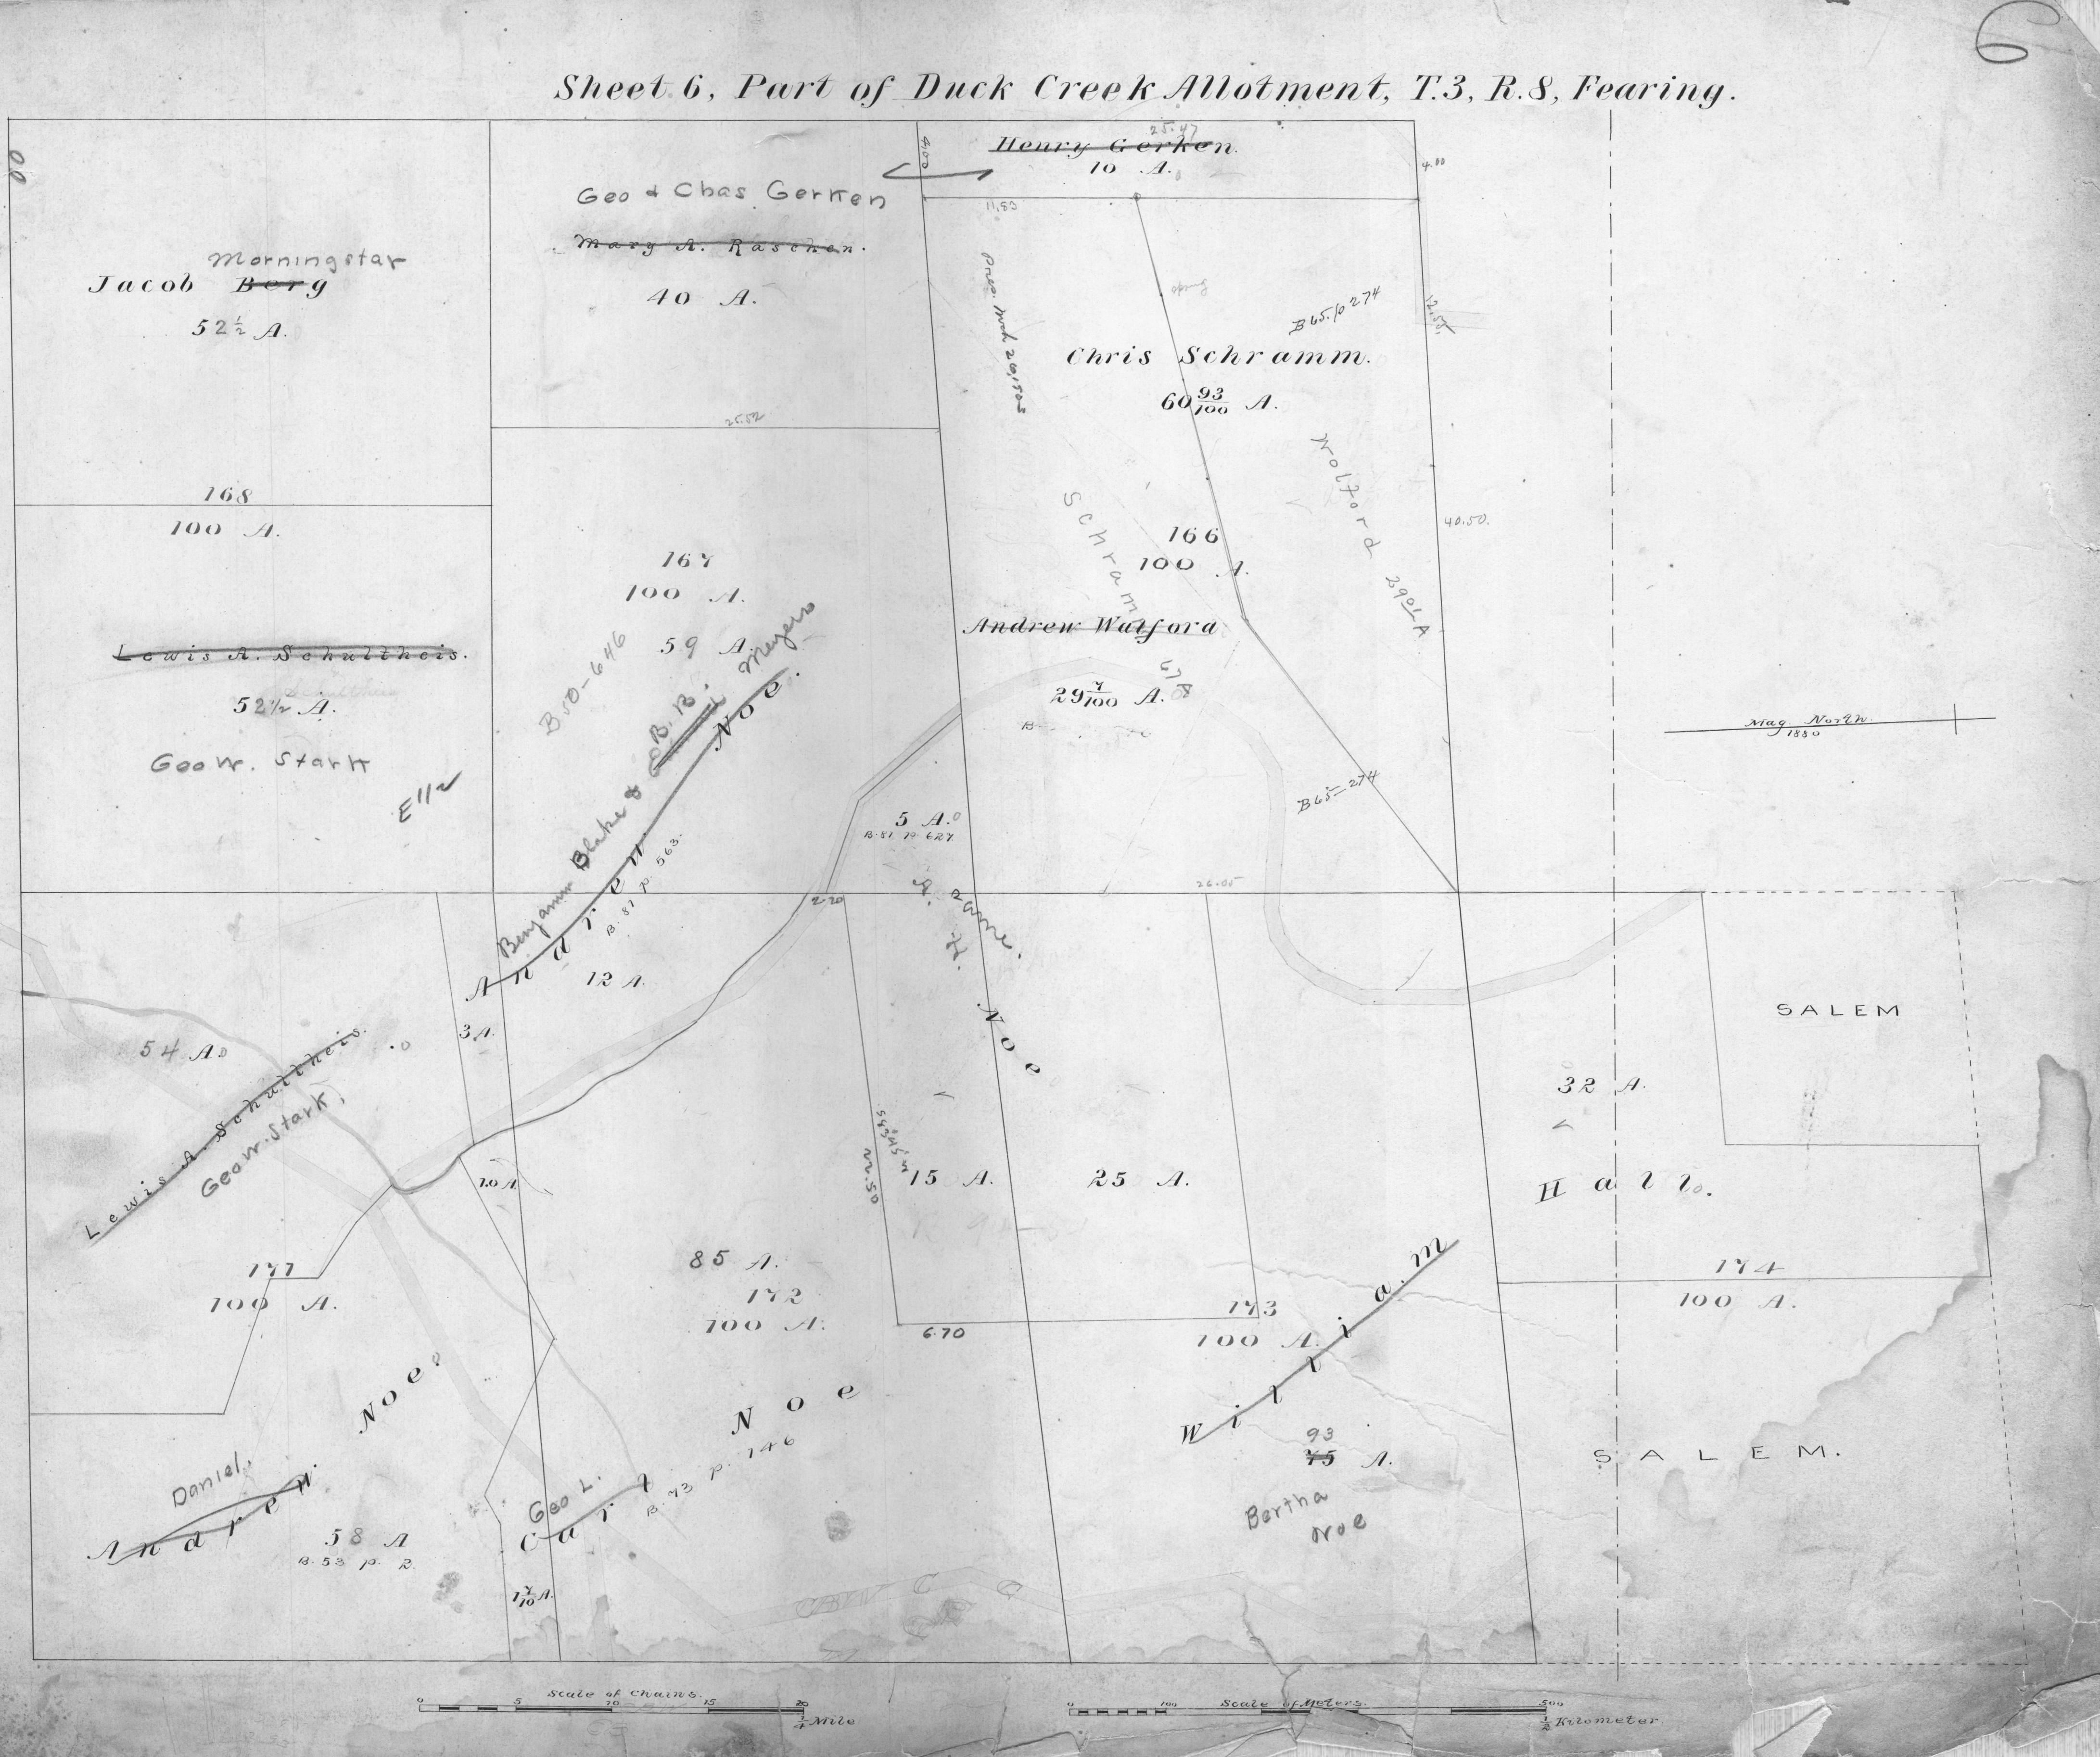 6
Sheet 6, Part of Duck Creek Allotment, T.3, R.8, Fearing.
Morningstar
Jacob Berg
52½ A.
168
100 A.
Lewis A. Schultheis.
52½ A.
Geo W. Stark
E 1/2
Geo & Chas Gerken
Mary A. Raschen.
40 A.
25.52
167
100 A.
59 A.
B50-646
Benjamin Blake & B. B. Meyers
Andrew Noe.
B. 81 p. 563.
12 A.
4.00
25.47
Henry Gerken.
10 A.
4.00
11.83
12.55
B 65. p 274
Chris Schramm.
60 93/100 A.
Wolford 29 01 A
Schram
40.50.
166
100 A.
Andrew Walford
678
29 7/100 A.
B65-274
5 A.
B. 81 p. 627
2.20
26.05
A. L. Noe
Mag. North.
1880
54 A.
Lewis A. Schultheis.
Geo W. Stark.
3 A.
177
100 A.
Daniel.
Andrew Noe.
58 A
B. 53 p. 2
1 7/10 A.
85 A.
172
100 A.
Geo L.
Carl Noe
B. 73 p. 146
22.50
6.70
15 A.
25 A.
173
100 A.
William Hall.
93
75 A.
Bertha
Noe
32 A.
174
100 A.
SALEM
SALEM.
Scale of Chains.
0 5 10 15 20
¼ Mile
Scale of Meters.
0 100 500
½ Kilometer